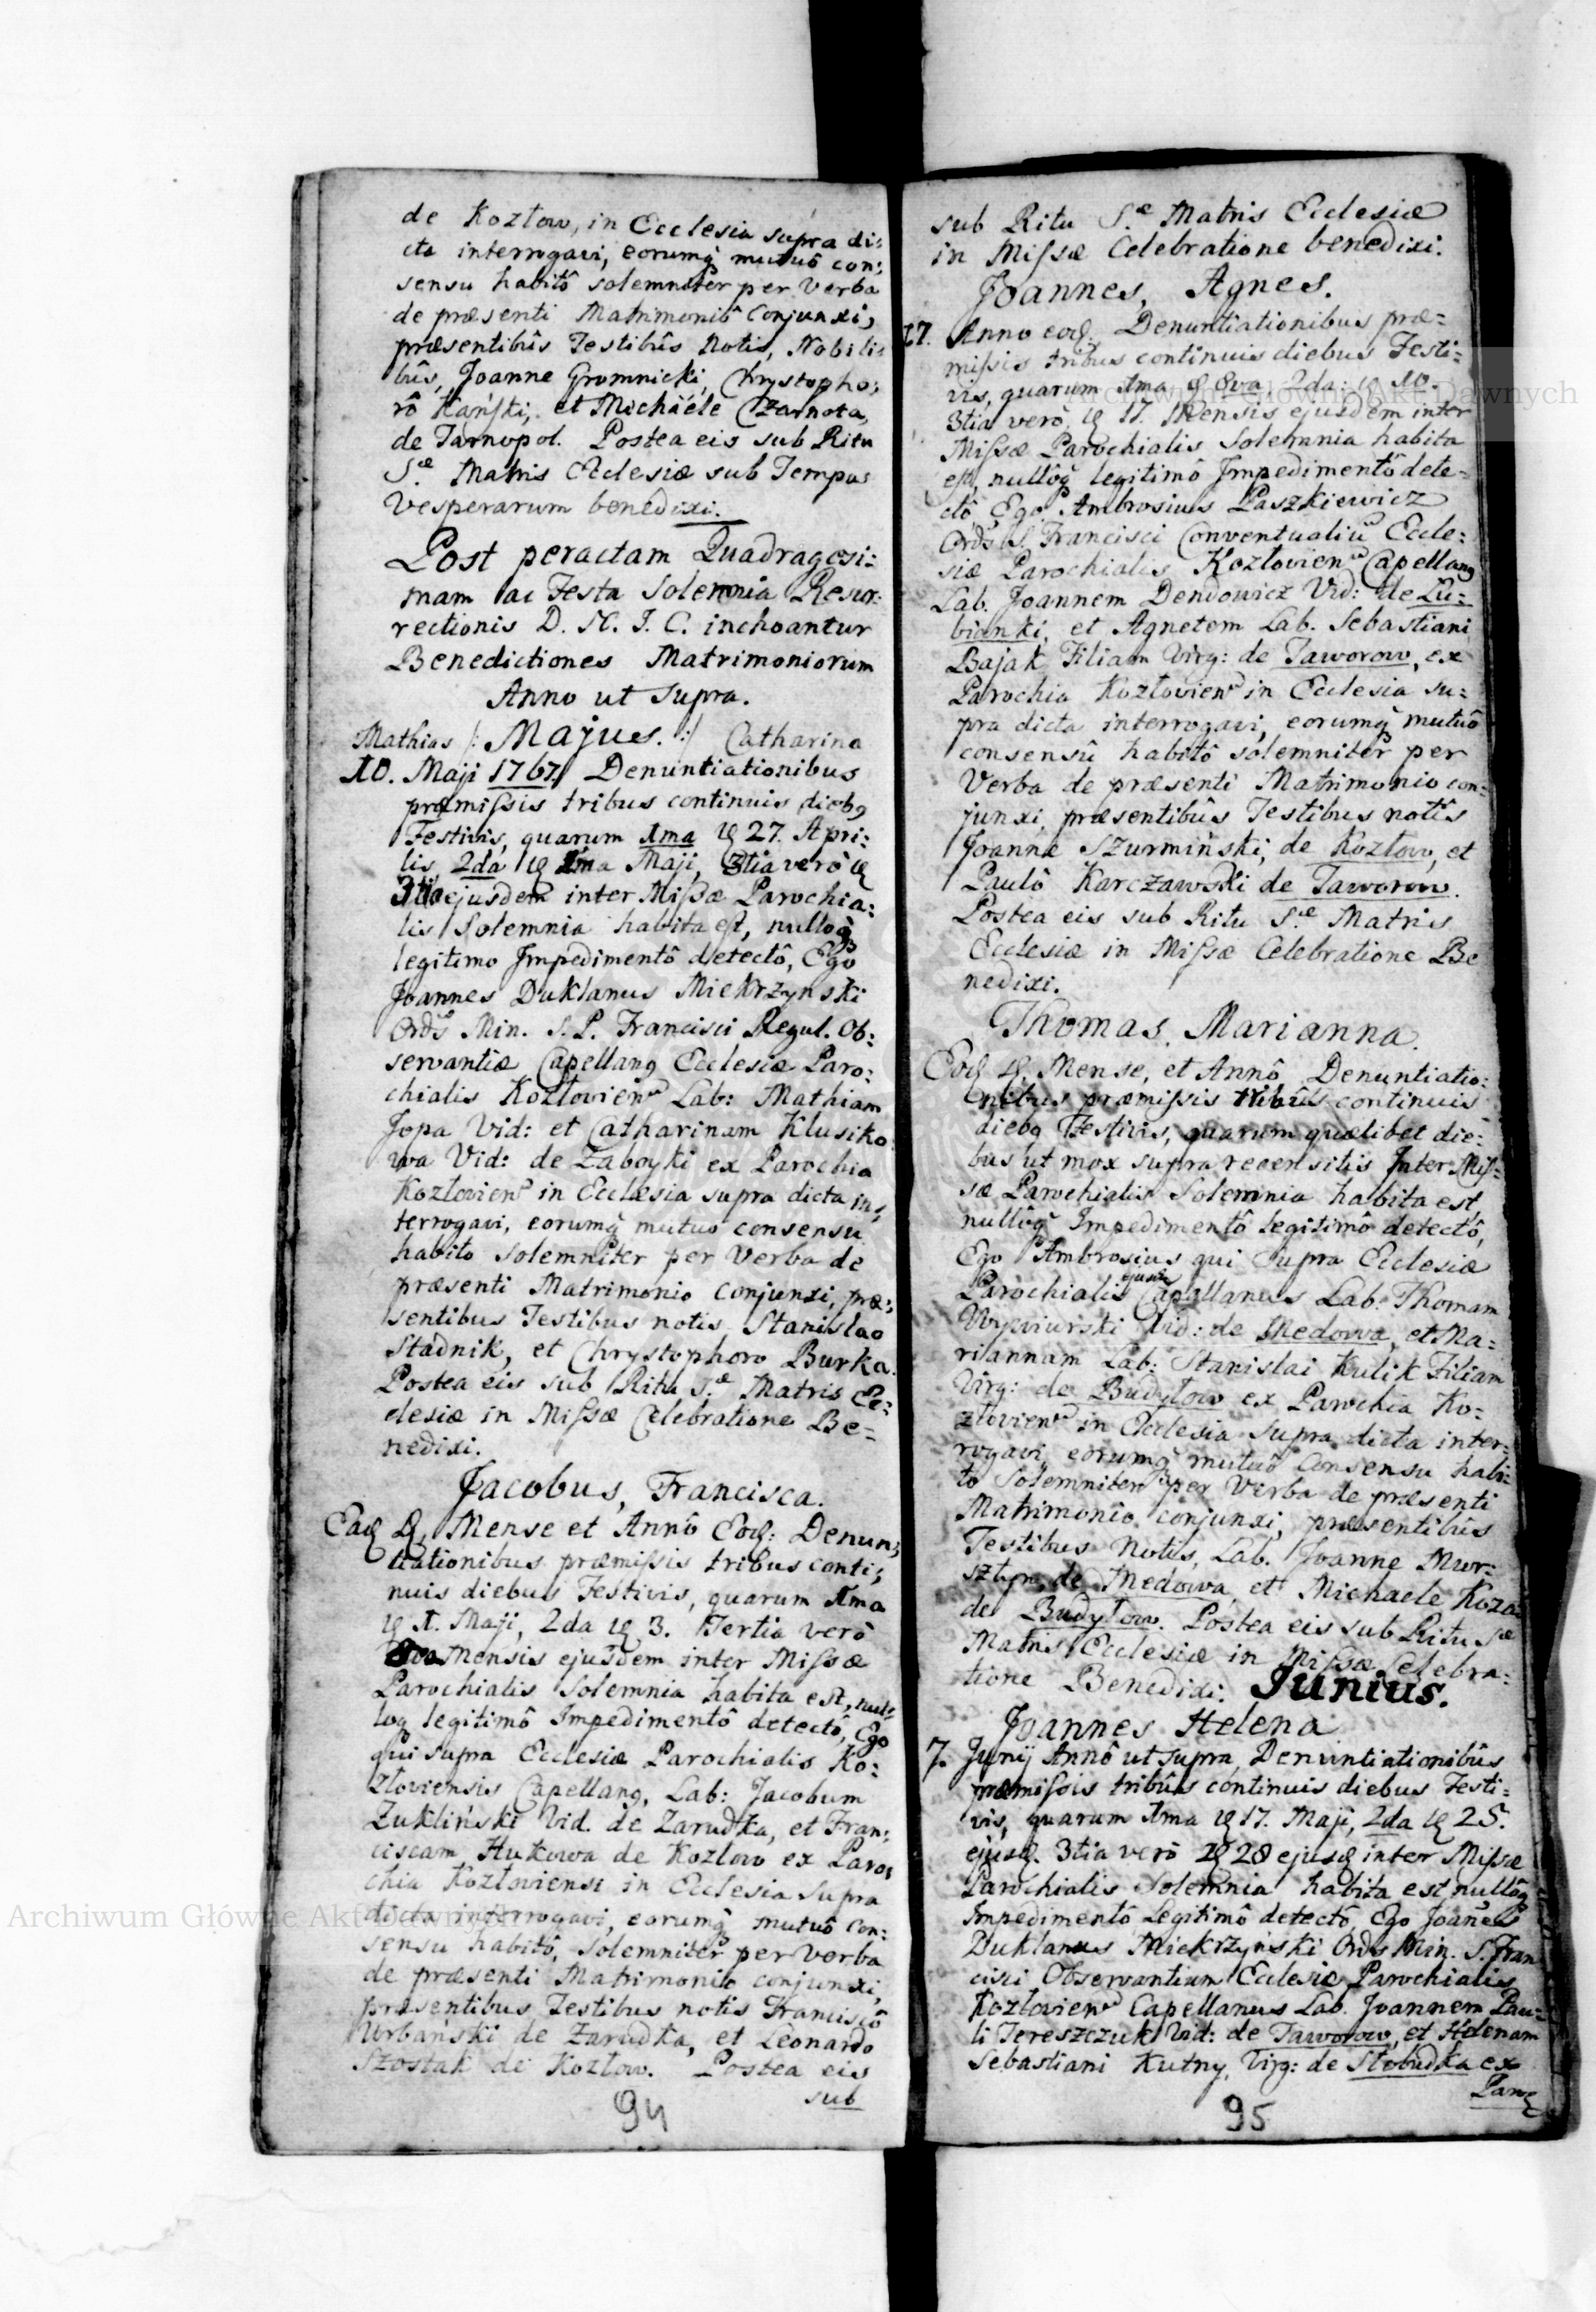 de Kozłow, in Ecclesia supra di:
cta interrogavi, eorumq; mutuô con:
sensu habitô solemnitêr per verba
de præsenti Matrimoniô Conjunxi,
præsentibûs Testibûs Notis, Nobili:
bûs, Joanne Gromnicki, Chrystopho:
rô Kański, et Michäéle Czarnota,
de Tarnopol. Postea eis sub Ritu
S.æ Matris Ecclesiæ sub Tempus
Vesperarum benedixi.
Post peractam Quadragesi:
mam ac Festa Solemnia Resur:
rectionis D. N. J. C. inchoantur
Benedictiones Matrimoniorum
Anno ut Supra.
Mathias /: Majus. :/ Catharina
10. Maji 1767 Denuntiationibus
præmissis tribus continuis dieb9
Festivis, quarum 1ma 27. Apri:
lis, 2da 1ma Maji, 3tia verò
3tia ejusdem inter Missæ Parochia:
lis Solemnia habita est, nulloq;
legitimo Impedimentô detectô, Ego
Joannes Duklanus Miekrzynski
Ordis Min. S. P. Francisci Regul. Ob:
servantiæ Capellan9 Ecclesiæ Paro:
chialis Kozłovien Lab: Mathiam
Jopa Vid: et Catharinam Klusiko
wa Vid: de Zaboyki ex Parochia
Kozłovien in Ecclæsia supra dicta in:
terrogavi, eorumq; mutuo consensu
habito solemniter per Verba de
præsenti Matrimonio conjunxi, præ:
sentibus Testibus notis Stanislao
Stadnik, et Chrystophoro Burka.
Postea eis sub Ritu S.æ Matris Ec:
clesiæ in Missæ Celebratione Be=
nedixi.
Jacobus, Francisca.
Mense et Annô Eod: Denun:
tiationibus præmissis tribus conti:
nuis diebus Festivis, quarum 1ma
1. Maji, 2da 3. Tertia verò
8va Mensis ejusdem inter Missæ
Parochialis Solemnia habita est, nul:
loq legitimô Impedimentô detectô, Ego
qui supra Ecclesiæ Parochialis Ko:
złoviensis Capellan9, Lab: Jacobum
Zukliński Vid. de Zarudka, et Fran:
ciscam Hukowa de Kozlow ex Paro:
chia Kozłoviensi in Ecclesia Supra
dicta interrogavi, eorumq; mutuô con:
sensu habitô, solemnitêr per verba
de præsenti Matrimonio conjunxi,
præsentibus Testibus notis Franciscô
Urbański de Zarudka, et Leonardo
Szostak de Kozłow. Postea eis
sub
94
sub Ritu S.æ Matris Ecclesiæ
in Missæ Celebratione benedixi.
Joannes, Agnes.
17. Anno eod. Denuntiationibus præ=
missis tribus continuis diebus Festi:
vis, quarum 1ma 8va, 2da: 10.
3tia verò 17. Mensis ejusdem inter
Missæ Parochialis Solemnia habita
est, nullôq; legitimô Impedimentô dete=
ctô, Ego Ambrosius Paszkiewicz
Ordis S. Francisci Conventualiu Eccle:
siæ Parochialis Kozłovien Capellan9
Lab. Joannem Dendowicz Vid: de Lu=
bianki, et Agnetem Lab. Sebastiani
Bajak Filiam Virg: de Taworow, ex
Parochia Kozłovien in Ecclesia su=
pra dicta interrogavi, eorumq; mutuô
consensû habitô solemnitêr per
Verba de præsenti Matrimonio con=
junxi, præsentibûs Testibus notis
Joanne Szurmiński, de Kozłow, et
Paulô Karczawski de Taworow.
Postea eis sub Ritu S.æ Matris
Ecclesiæ in Missæ Celebratione Be
nedixi.
Thomas, Marianna.
Mense, et Annô Denuntiatio:
nibus præmissis tribûs continuis
dieb9 Festivis, quarum quælibet die:
bus ut mox supra recensitis Inter Mis:
sæ Parochialis Solemnia habita est,
nullôq; Impedimentô legitimô detectô,
Ego Ambrosius qui supra Ecclesiæ
Parochialis ejusde Capellanus Lab. Thomam
Wywiurski Vid: de Medowa, et Ma=
riannam Lab: Stanislai Kulik Filiam
Virg: de Budyłow ex Parochia Ko=
złovien in Ecclesia supra dicta inter=
rogavi, eorumq; mutuô Consensu habi:
to Solemniter per Verba de præsenti
Matrimonio conjunxi, præsentibûs
Testibus Notis, Lab. Joanne Mur=
sztyn, de Medowa, et Michaele Koza
de Budyłow. Postea eis sub Ritu Sæ
Matris Ecclesiæ in Missæ Celebra=
tione Benedixi. Junius.
Joannes Helena
7. Junÿ Annô ut supra, Denuntiationibûs
præmissis tribûs continuis diebus Festi=
vis, quarum 1ma 17. Maji, 2da 25.
ejusd. 3tia verò 28 ejusd inter Missæ
Parochialis Solemnia habita est, nullôq;
Impedimentô Legitimô detectô, Ego Joanes
Duklanus Miekrzyński Ordis Min. S. Fran
cisci Observantium Ecclesiæ Parochialis
Kozłovien Capellanus Lab. Joannem Pau=
li Tereszczuk Vid: de Taworow, et Helenam
Sebastiani Kutny, Virg: de Słobudka ex
Paro
95
Archiwum Główne Akt Dawnych
Archiwum Główne Akt Dawnych